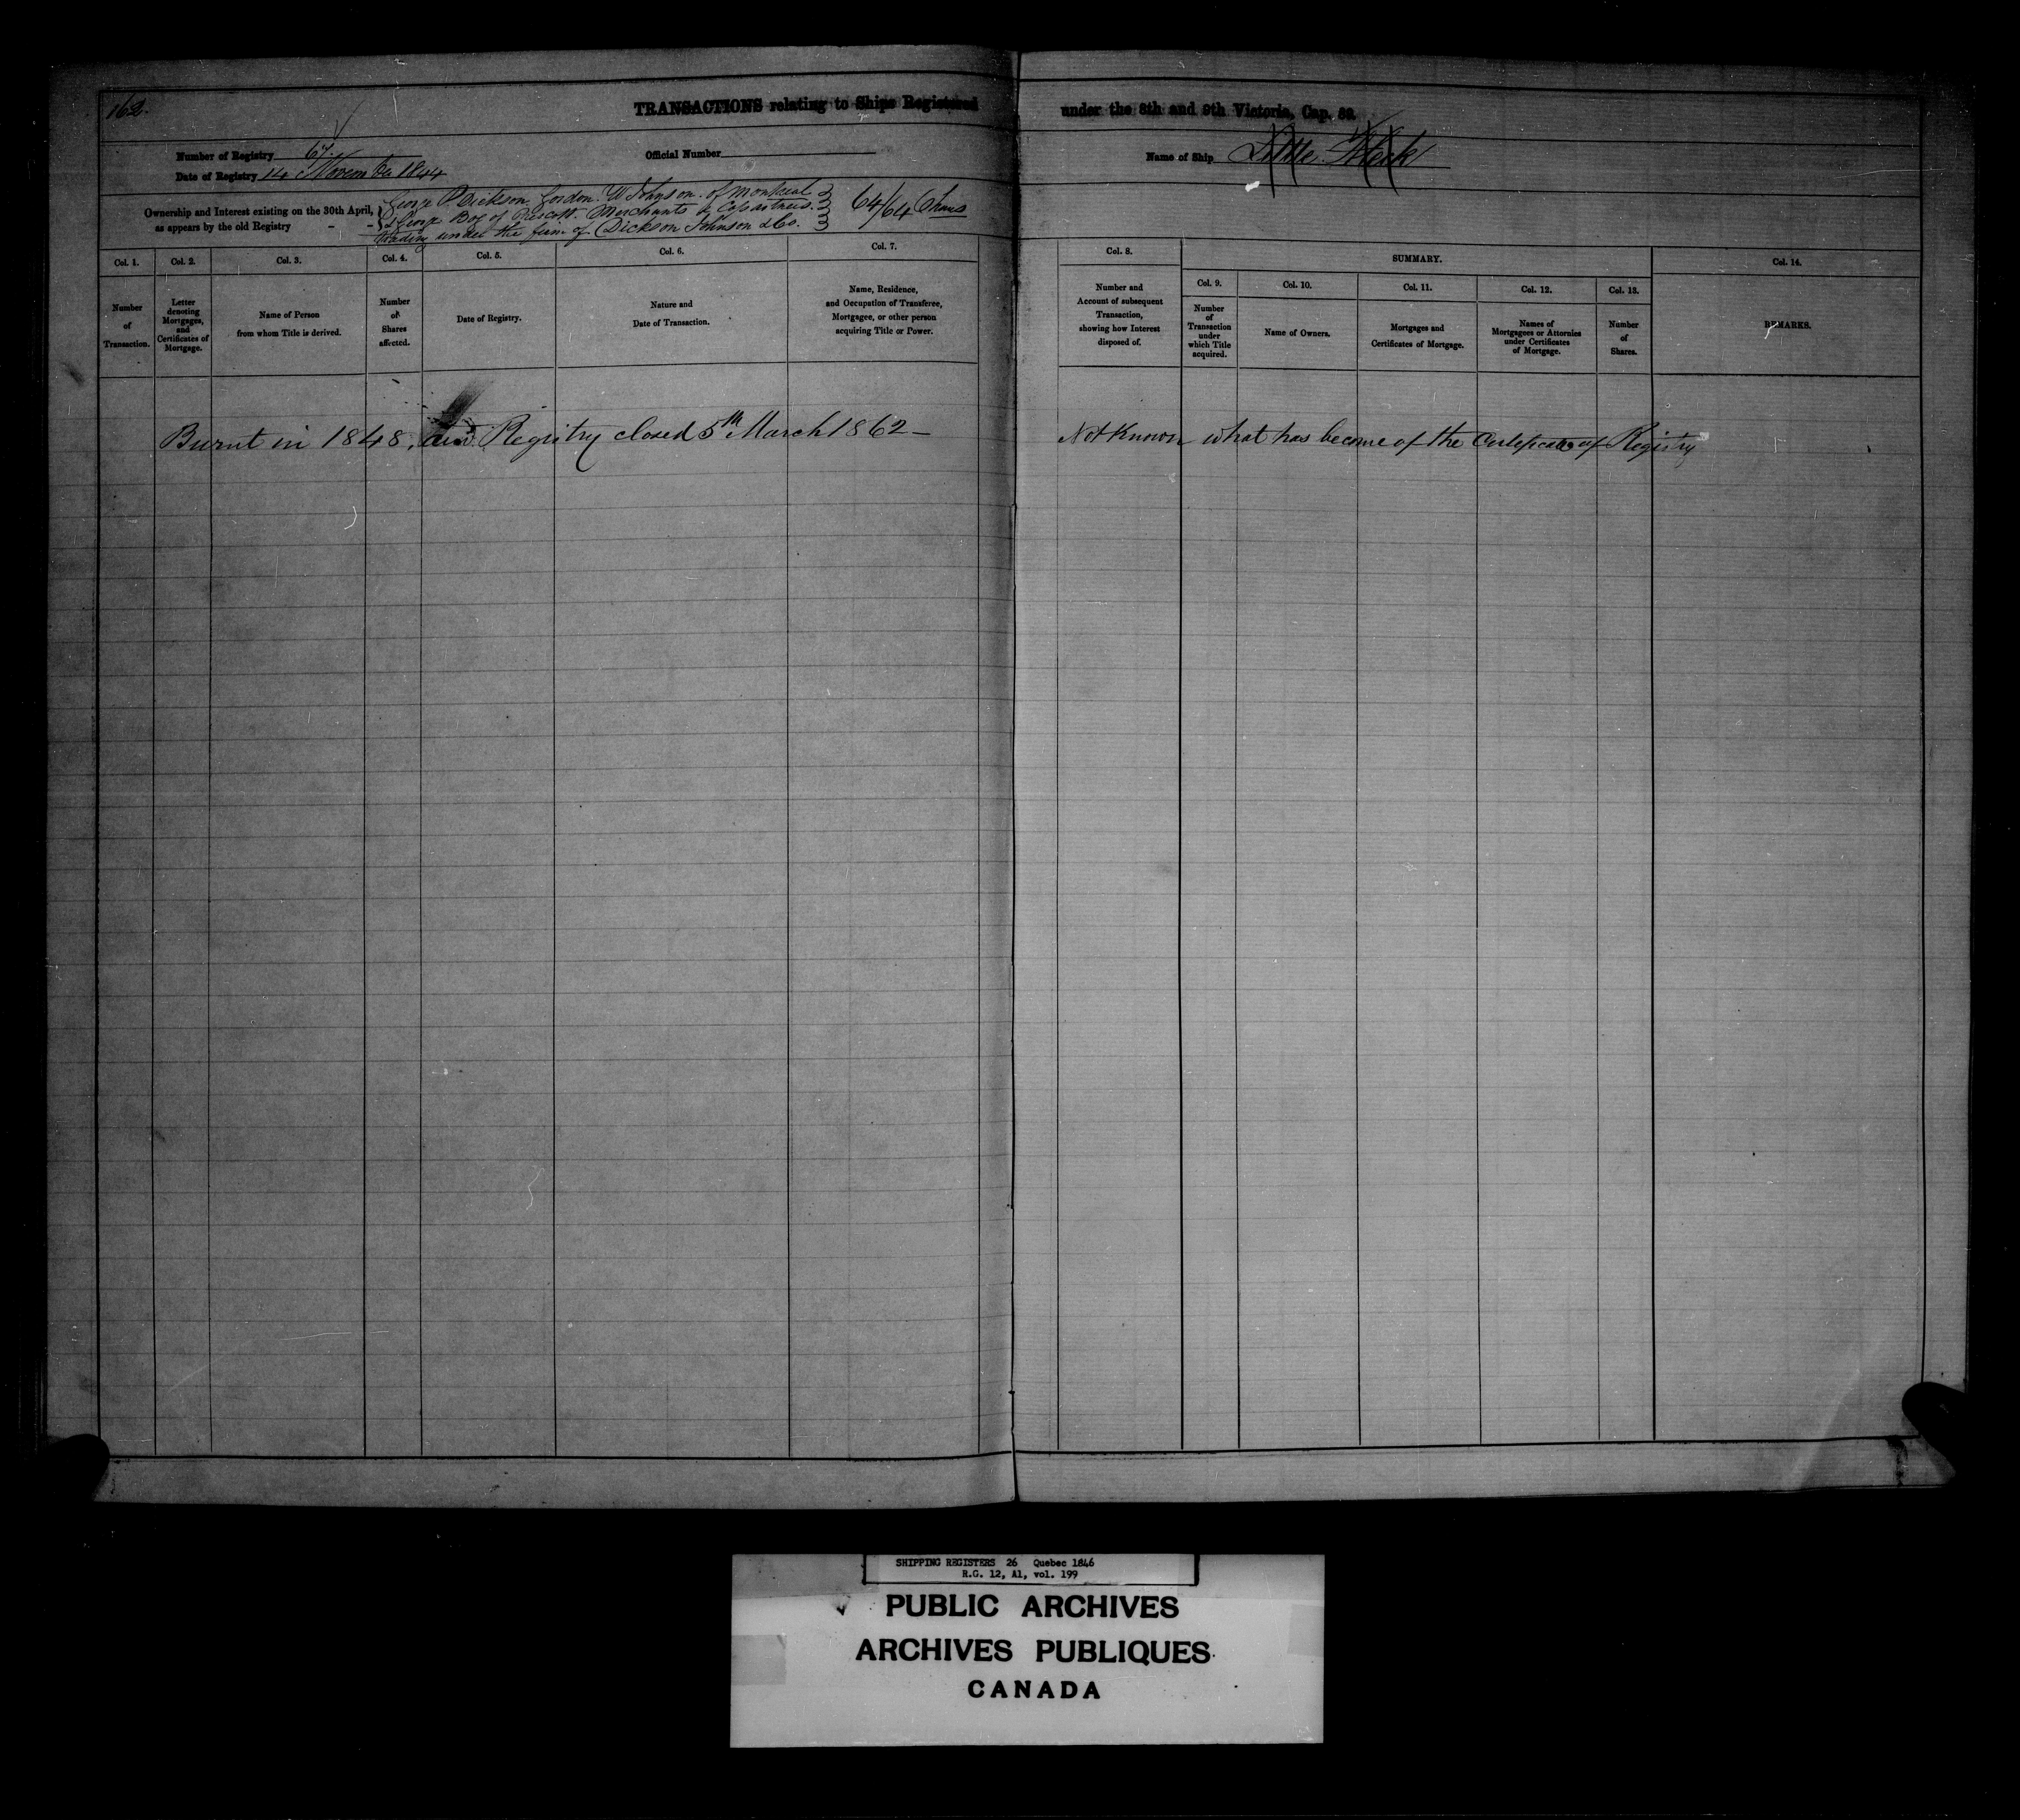 162.
TRANSACTIONS relating to Ships Registered under the 8th and 9th Victoria, Cap. 89.
Number of Registry 67.
Official Number
Name of Ship Little
Date of Registry 14 November 1844
Ownership and Interest existing on the 30th April,
as appears by the old Registry - -
George P. Dickson. Gordon. W Johnson. of Montreal
& George Bog of Prescott. Merchants & Copartners.
trading under the firm of Dickson Johnson & Co.
64/64 Shares
Col. 1.
Number
of
Transaction.
Col. 2.
Letter
denoting
Mortgages,
and
Certificates of
Mortgage.
Col. 3.
Name of Person
from whom Title is derived.
Col. 4.
Number
of
Shares
affected.
Col. 5.
Date of Registry.
Col. 6.
Nature and
Date of Transaction.
Col. 7.
Name, Residence,
and Occupation of Transferee,
Mortgagee, or other person
acquiring Title or Power.
Col. 8.
Number and
Account of subsequent
Transaction,
showing how Interest
disposed of.
SUMMARY.
Col. 9.
Number
of
Transaction
under
which Title
acquired.
Col. 10.
Name of Owners.
Col. 11.
Mortgages and
Certificates of Mortgage.
Col. 12.
Names of
Mortgagees or Attornies
under Certificates
of Mortgage.
Col. 13.
Number
of
Shares.
Col. 14.
REMARKS.
Burnt in 1848, and Registry closed 5th March 1862 —
Not Known what has become of the Certificate of Registry
SHIPPING REGISTERS 26 Quebec 1846
R.G. 12, A1, vol. 199
PUBLIC ARCHIVES
ARCHIVES PUBLIQUES
CANADA